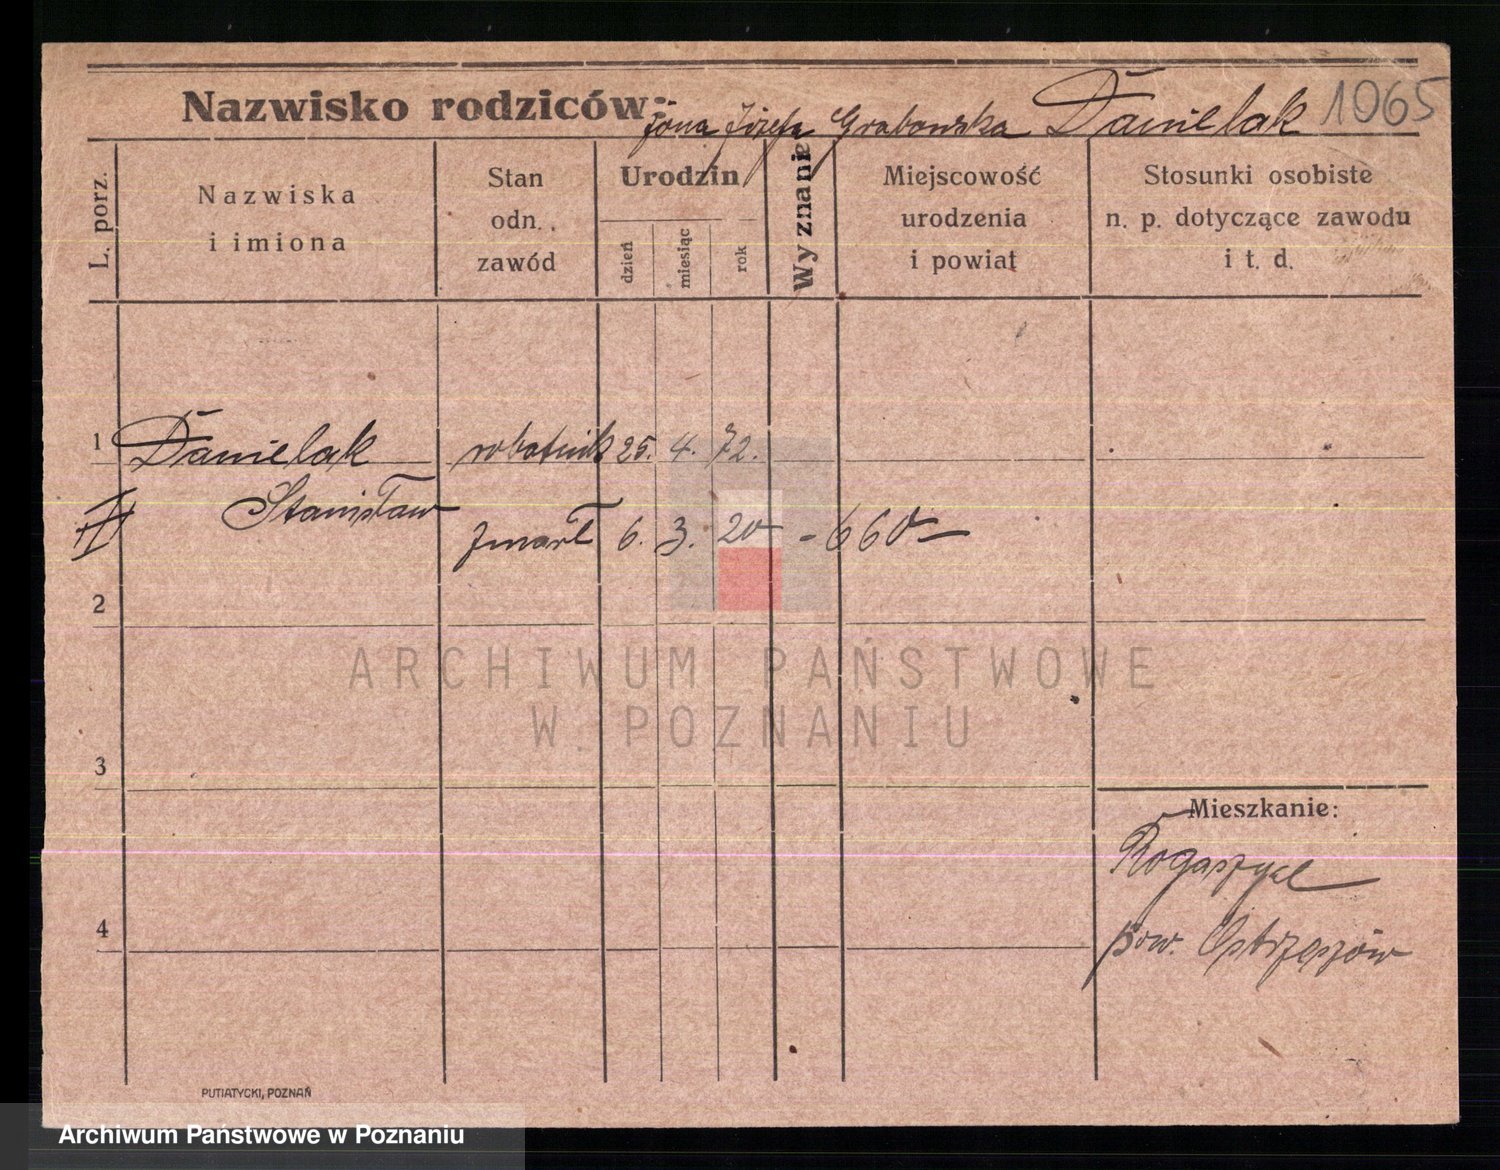 Nazwisko rodziców:
żona Józefa Grabowska Danielak 1065
L. porz.
Nazwiska
i imiona
Stan
odn.
zawód
Urodzin
dzień
miesiąc
rok
Wyznanie
Miejscowość
urodzenia
i powiat
Stosunki osobiste
n. p. dotyczące zawodu
i t. d.
1 Danielak robotnik 25. 4. 72.
Stanisław
zmarł 6. 3. 20 - 660 -
2
ARCHIWUM PAŃSTWOWE
W POZNANIU
3
Mieszkanie:
Rogaszyce
pow. Ostrzeszów
4
PUTIATYCKI, POZNAŃ
Archiwum Państwowe w Poznaniu